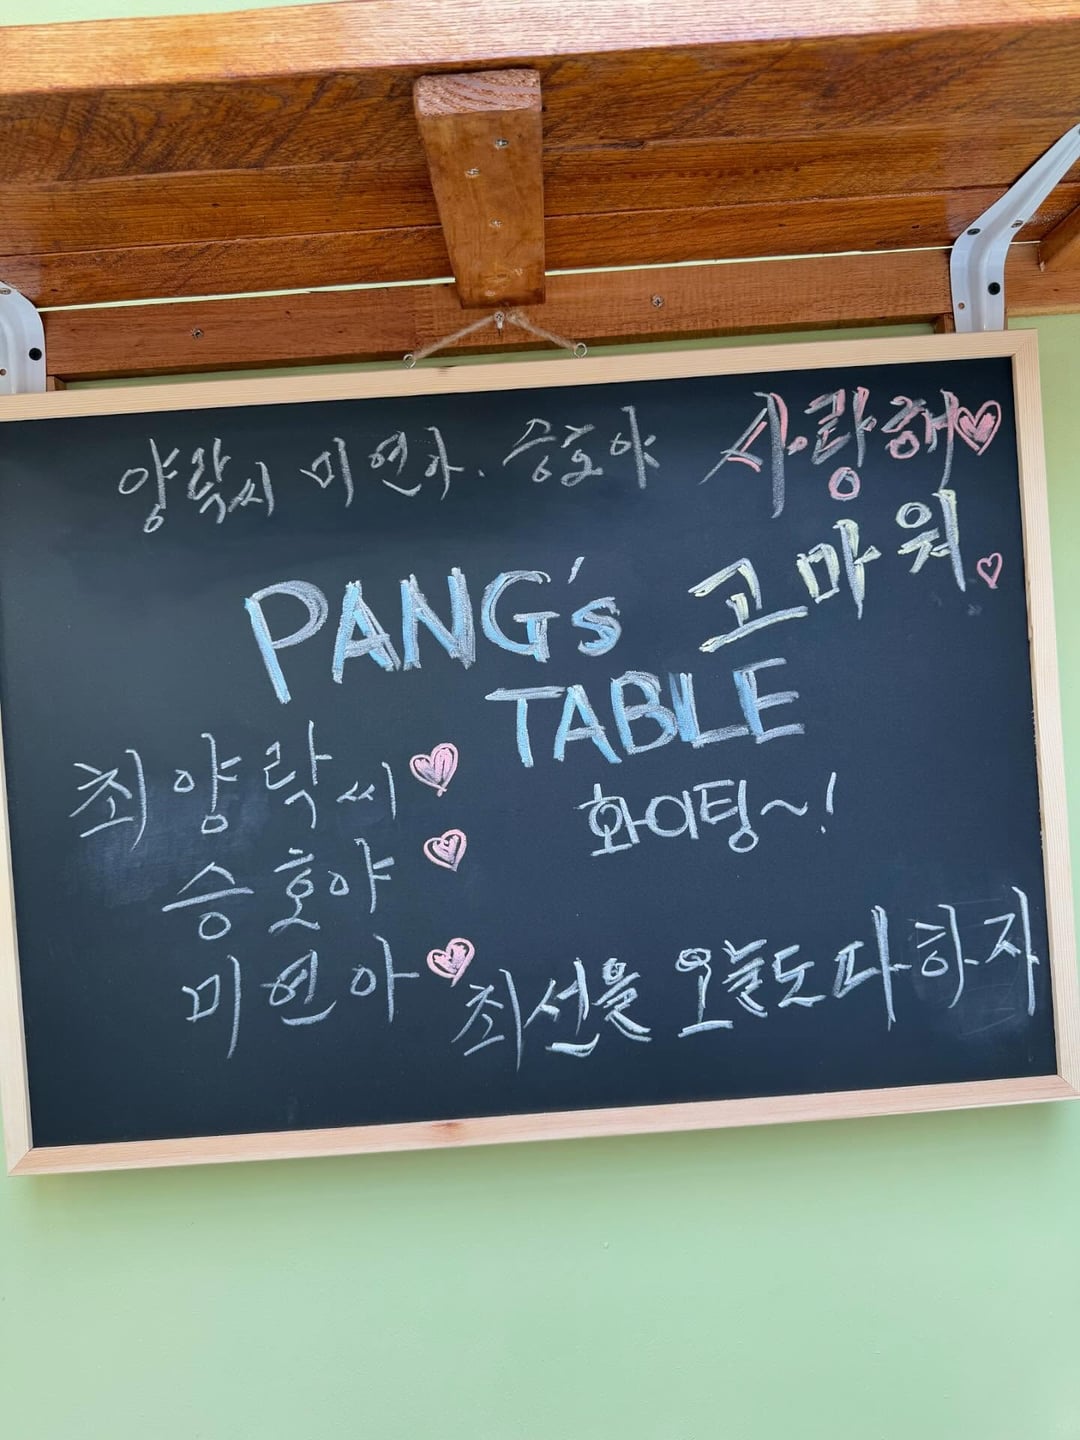 양락씨 미연아. 승호야 사랑해♡
고마워.♡
PANG's
TABLE
화이팅~!
최양락씨♡
승호야♡
미연아♡
최선을 오늘도 다하자